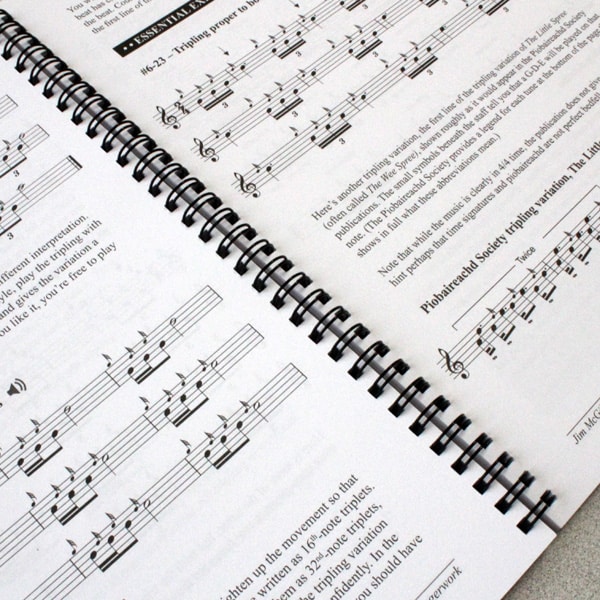 the beat.
the first line of
••ESSENTIAL
#6-23 – Tripling proper to
3 3 3
3 3 3
Here's another tripling variation, the first line of the tripling variation of The Little Spree
(often called The Wee Spree), shown roughly as it would appear in the Piobaireachd Society
publications. The small symbols beneath the staff tell you that a G-D-E will be played on that
note. (The Piobaireachd Society provides a legend for each tune at the bottom of the page
shows in full what these abbreviations mean.)
Note that while the music is clearly in 4/4 time, the publication does not give
hint perhaps that time signatures and piobaireachd are not perfect
Piobaireachd Society tripling variation, The
Twice
Jim
3
interpretation.
play the tripling with
and gives the variation a
like it, you're free to play
up the movement so that
written as 16th-note triplets.
as 32nd-note triplets,
the tripling variation
In the
you should have